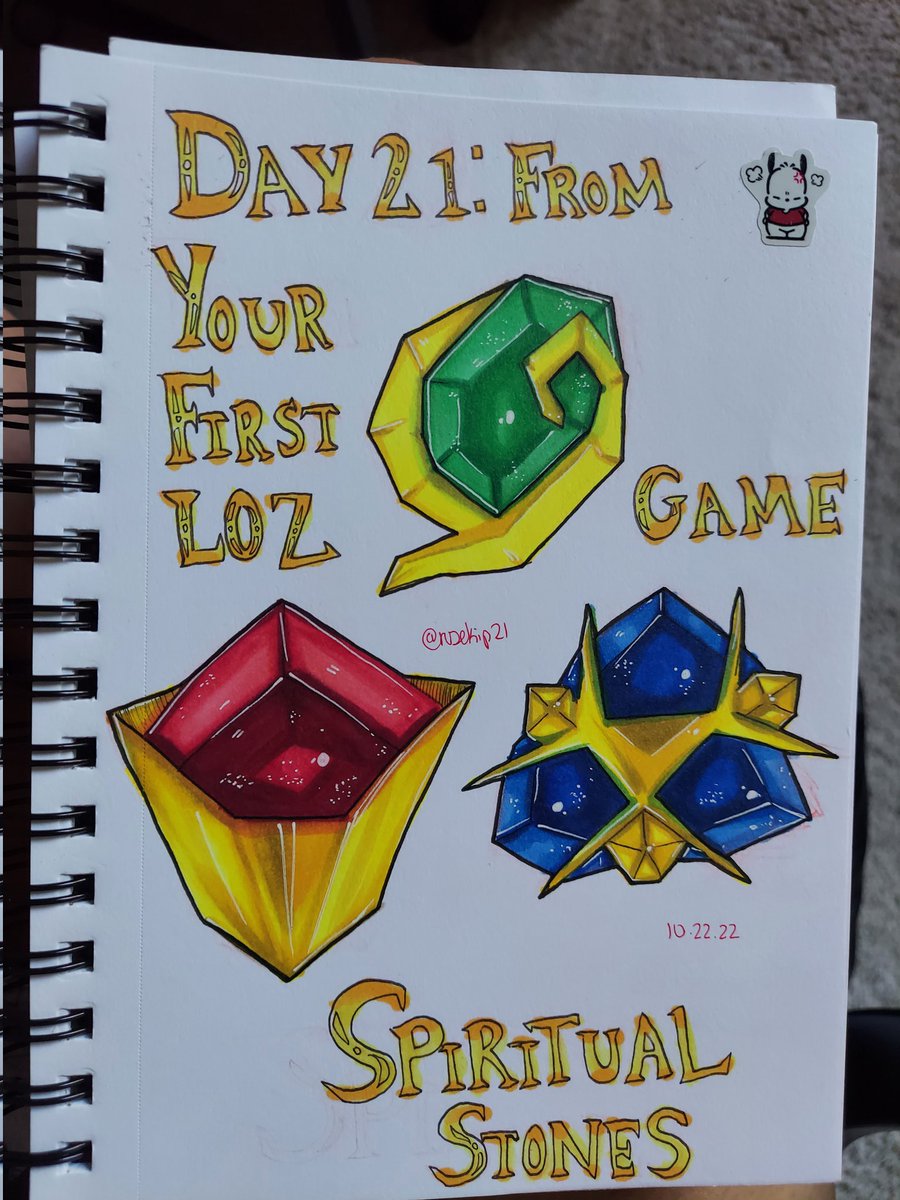 DAY 21: FROM
YOUR
FIRST
LOZ
GAME
@rosekip21
10.22.22
SPIRITUAL
STONES